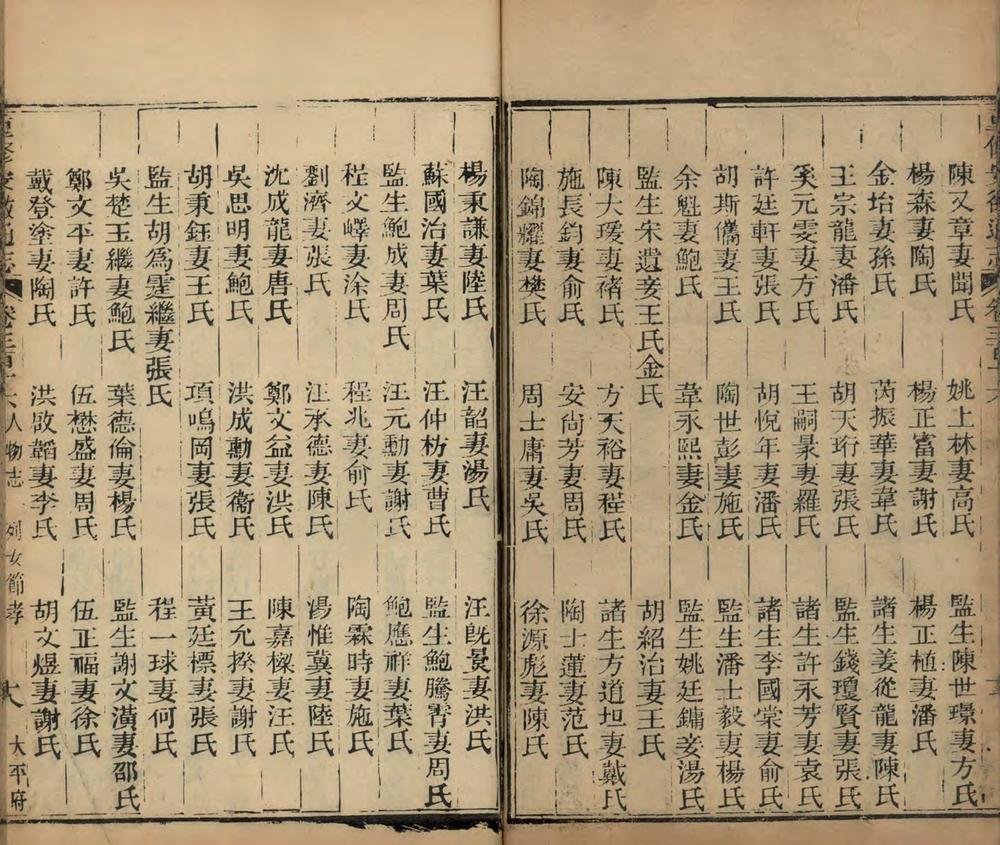 陳文章妻聞氏 姚上林妻高氏 監生陳世環妻方氏
楊森妻陶氏 楊正富妻謝氏 楊正植妻潘氏
金坮妻孫氏 芮振華妻韋氏 諸生姜從龍妻陳氏
王宗龍妻潘氏 胡天珩妻張氏 監生錢瓊賢妻張氏
奚元雯妻方氏 王嗣景妻羅氏 諸生許永芳妻袁氏
許廷軒妻張氏 胡悅年妻潘氏 諸生李國棠妻俞氏
胡斯儁妻王氏 陶世彭妻施氏 監生潘士毅妻楊氏
余魁妻鮑氏 韋永熙妻金氏 監生姚廷鏞妾湯氏
監生朱遺妾王氏金氏 胡紹治妻王氏
陳大瑗妻褚氏 方天裕妻程氏 諸生方道坦妻戴氏
施長鈞妻俞氏 安尙芳妻周氏 陶士蓮妻范氏
陶錦耀妻樊氏 周士庸妻吳氏 徐源彪妻陳氏
楊秉謙妻陸氏 汪韶妻湯氏 汪旣景妻洪氏
蘇國治妻葉氏 汪仲枋妻曹氏 監生鮑騰霄妻周氏
監生鮑成妻周氏 汪元勳妻謝氏 鮑應祥妻葉氏
程文嶧妻涂氏 程兆妻俞氏 陶霖時妻施氏
劉濟妻張氏 汪承德妻陳氏 湯惟冀妻陸氏
沈成龍妻唐氏 鄭文益妻洪氏 陳嘉樑妻汪氏
吳思明妻鮑氏 洪成勳妻衞氏 王允揆妻謝氏
胡秉鈺妻王氏 項鳴岡妻張氏 黃廷標妻張氏
監生胡爲霔繼妻張氏 程一球妻何氏
吳楚玉繼妻鮑氏 葉德倫妻楊氏 監生謝文潢妻邵氏
鄭文平妻許氏 伍懋盛妻周氏 伍正福妻徐氏
戴登塗妻陶氏 洪啟韜妻李氏 胡文煜妻謝氏
重修安徽通志 卷 人物志 列女節孝 太平府